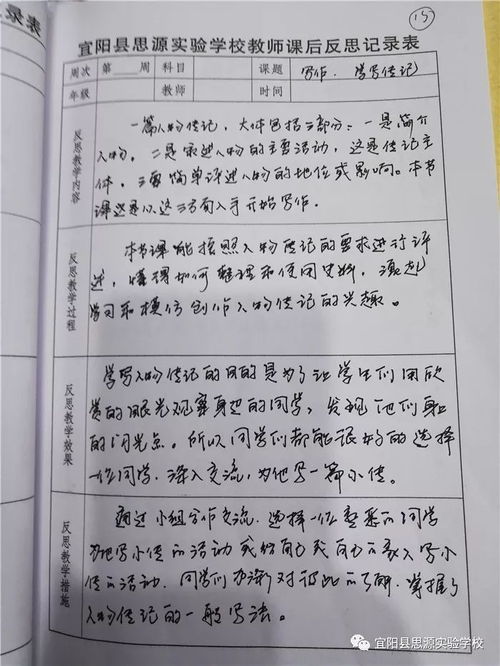 录表
15
宜阳县思源实验学校教师课后反思记录表
周次 第 周 科目 课题 写作．学写传记
年级 教师 时间
反思教学内容
一篇人物传记，大体包括三部分：一是简介
人物。二是叙述人物的主要活动，这是传记主
体，三要简单评述人物的地位或影响。本节
课还是从这三方面入手开始写作。
反思教学过程
本节课能按照人物传记的要求进行评
述，懂得如何整理和使用史料，激起
学习和模仿创作人物传记的兴趣。
反思教学效果
学写人物传记的目的是为了让学生们用欣
赏的眼光观察身边的同学，发现他们身上
的闪光点。所以同学们都能很好的选择
一位同学．深入交流，为他写一篇小传。
反思教学措施
通过小组合作交流．选择一位熟悉的同学
为他写小传的活动
入写小
传的活动．同学们 对彼此的了解．掌握了
人物传记的一般写法。
宜阳县思源实验学校